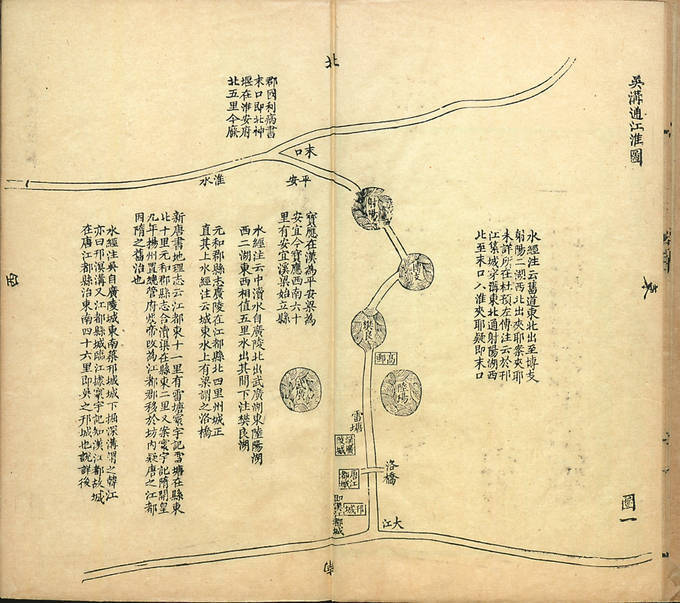 吳溝通江淮圖
圖一
北
東
西
水經注云舊道東北出至博芝
射陽二湖西北出夾耶案夾耶
未詳所在杜預左傳注云於邗
江築城穿溝東北通射陽湖西
北至末口入淮夾耶疑即末口
郡國利病書
末口即北神
堰在淮安府
北五里今廢
末口
淮水
平安
射陽
博芝
樊良
高郵
陸陽
武廣
雷塘
廣陵城
唐江都
洛橋
邗城
即漢江都城
大江
寶應在漢為平安梁為
安宜今寶應西南六十
里有安宜溪梁始立縣
水經注云中瀆水自廣陵北出武廣湖東陸陽湖
西二湖東西相值五里水出其間下注樊良湖
元和郡縣志廣陵在江都縣北四里州城正
直其上水經注云城東水上有梁謂之洛橋
新唐書地理志云江都東十一里有雷塘寰宇記雷塘在縣東
北十里元和郡縣志合瀆渠在縣東二里又案寰宇記隋開皇
九年揚州置總管府煬帝改為江都郡移於坊內疑唐之江都
因隋之舊治也
水經注吳自廣陵城東南築邗城城下掘深溝謂之韓江
亦曰邗溟溝又江都縣城臨江據寰宇記知漢江都故城
在唐江都縣治東南四十六里即吳之邗城也說詳後